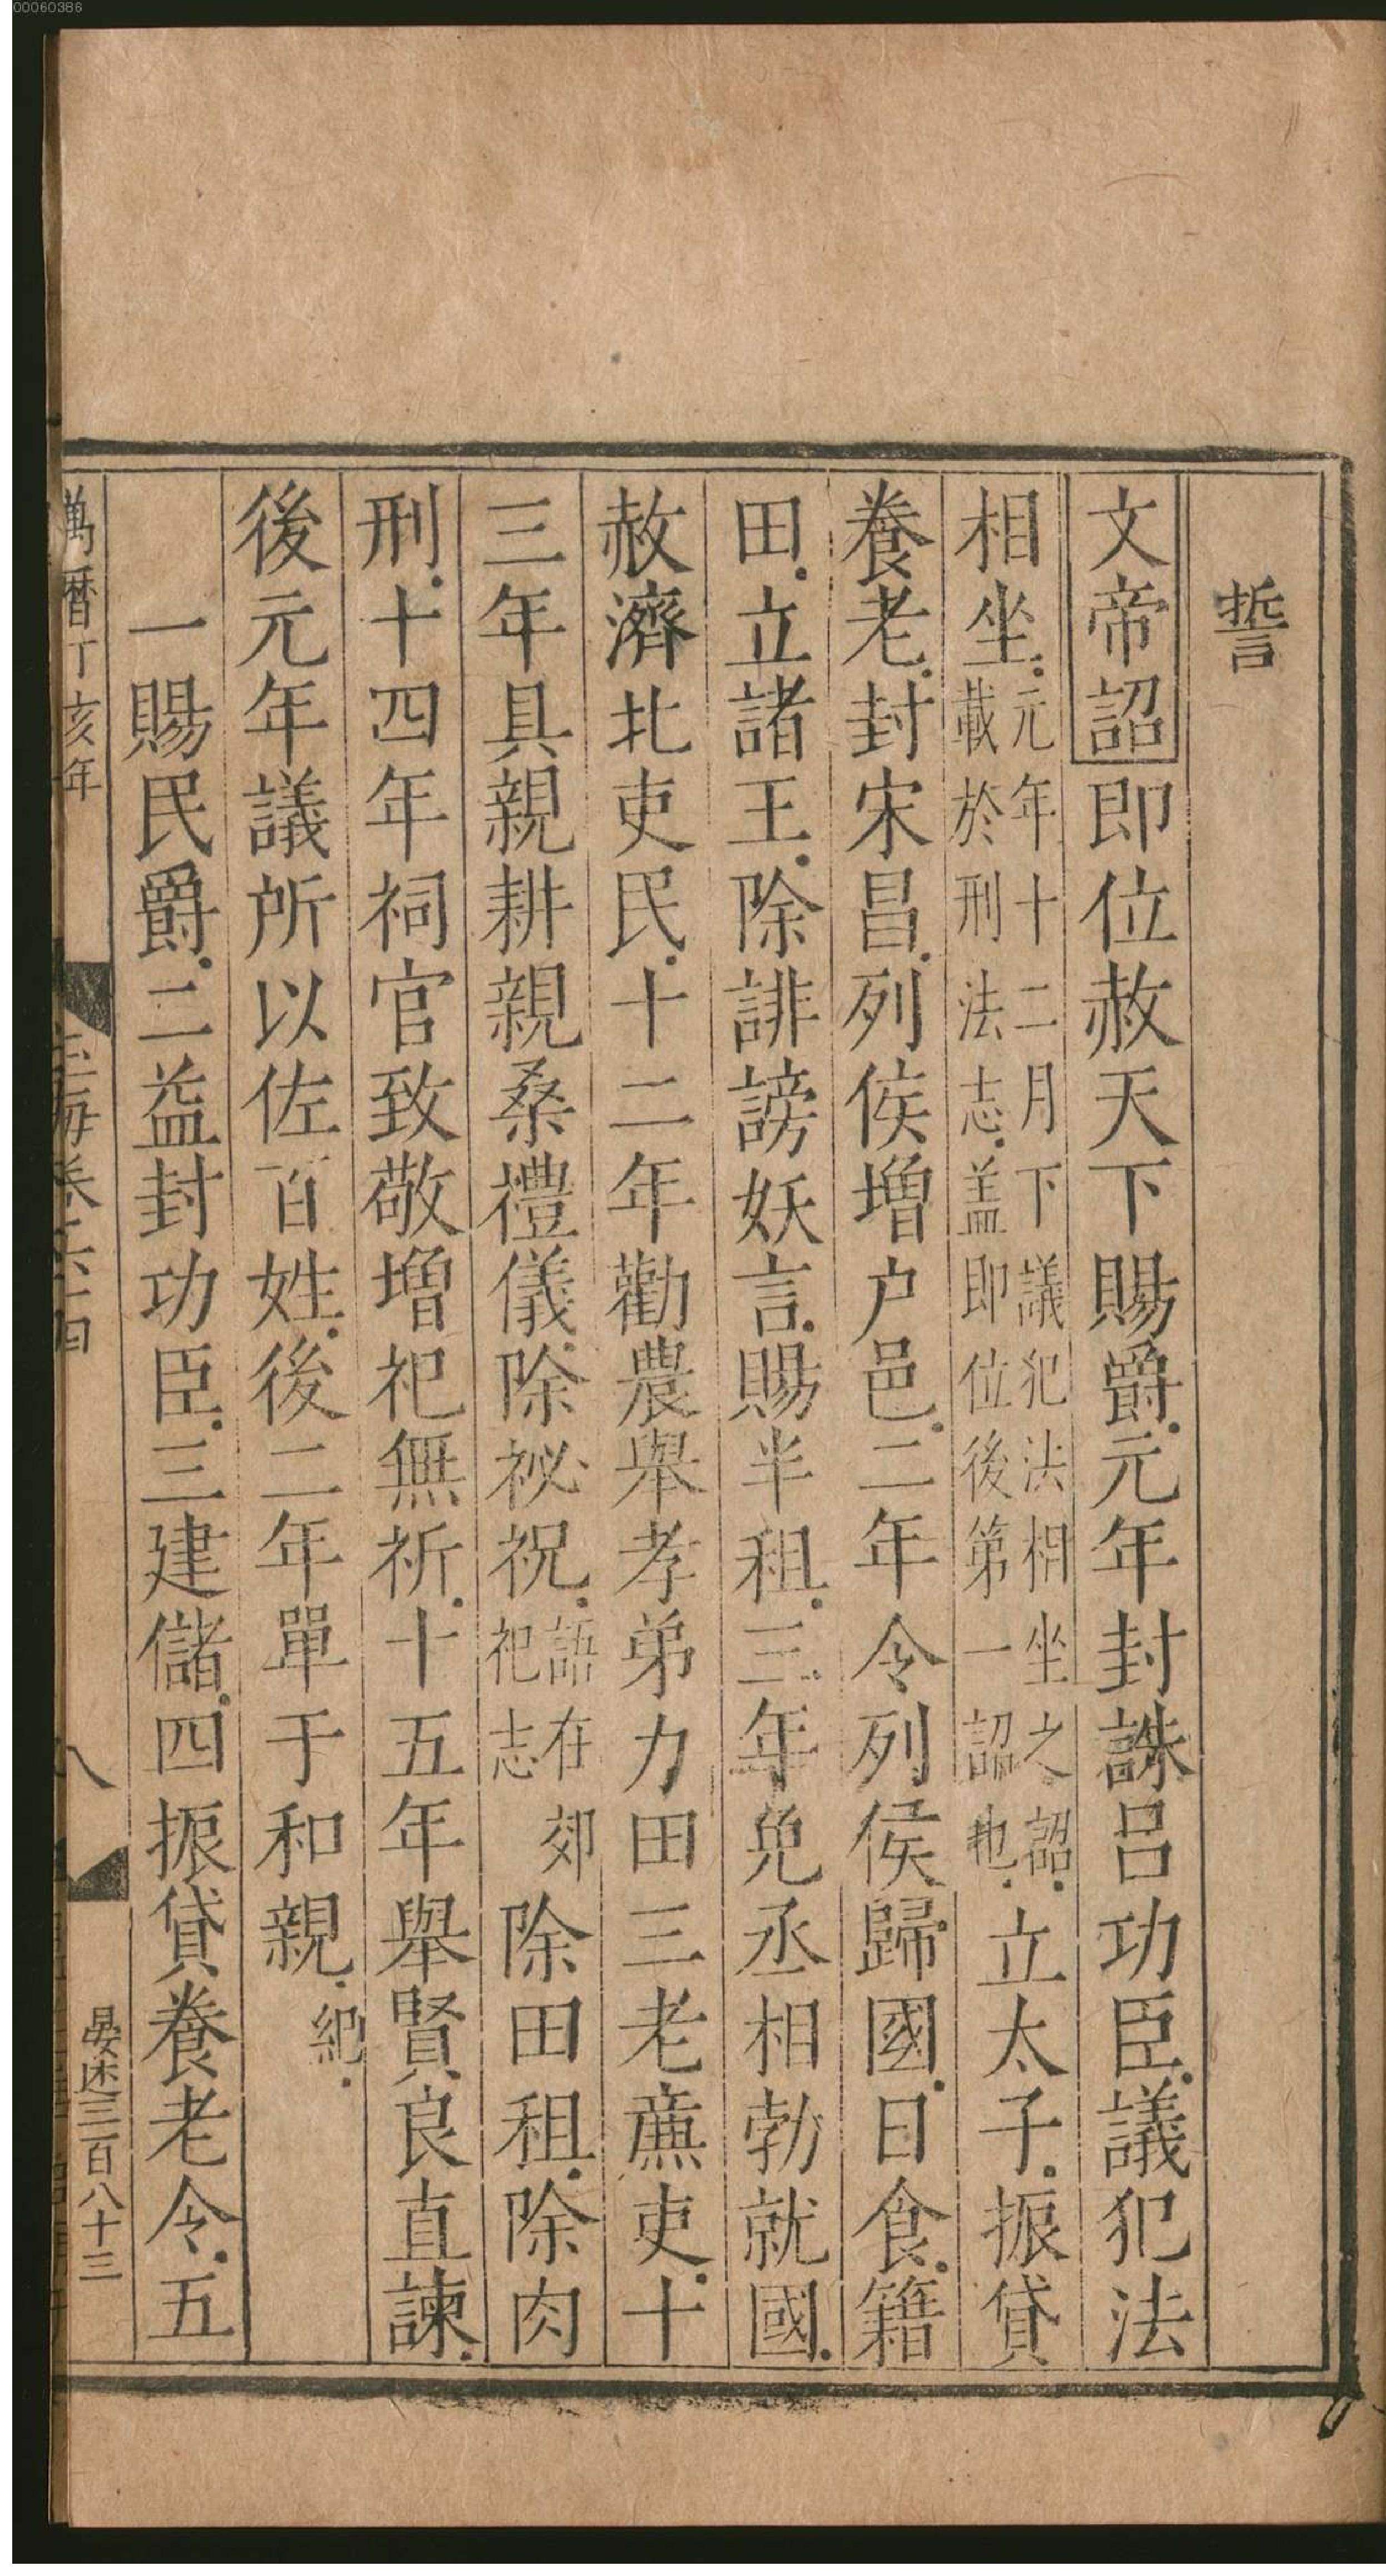 00060386
誓
文帝詔即位赦天下賜爵元年封誅呂功臣議犯法
相坐元年十二月下議犯法相坐之詔載於刑法志盖即位後第一詔也立太子振貸
養老封宋昌列侯增户邑二年令列侯歸國日食籍
田立諸王除誹謗妖言賜半租三年免丞相勃就國
赦濟北吏民十二年勸農舉孝弟力田三老廉吏十
三年具親耕親桑禮儀除祕祝語在郊祀志除田租除肉
刑十四年祠官致敬增祀無祈十五年舉賢良直諫
後元年議所以佐百姓後二年單于和親紀
一賜民爵二益封功臣三建儲四振貸養老令五
萬曆丁亥年
玉海卷六十四
八
晏述三百八十三